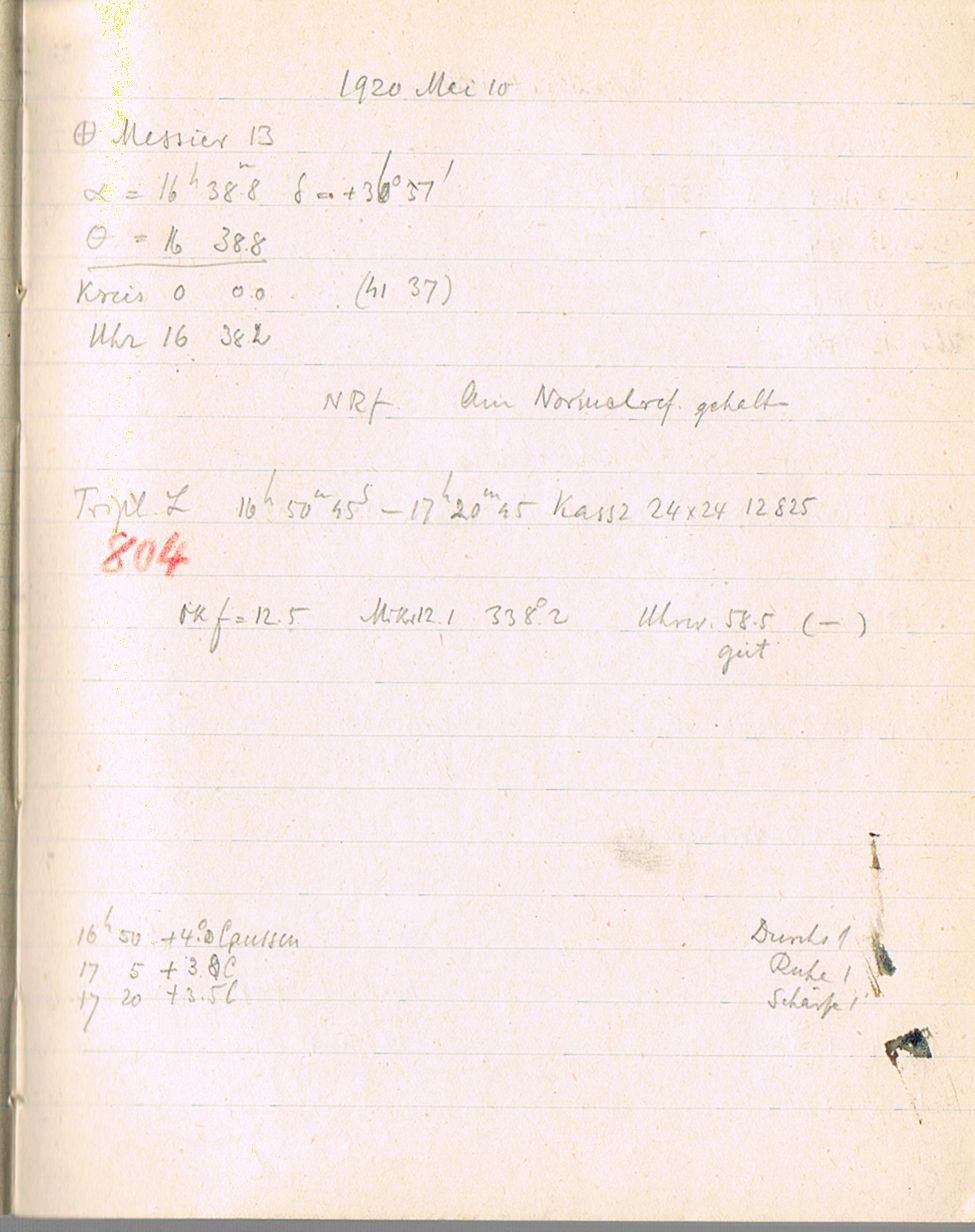 1920 Mai 10
⊕ Messier 13
α = 16ʰ 38ᵐ.8 δ = +36° 37'
θ = 16 38.8
Kreis 0 0.0 (h1 37)
Uhr 16 38.2
NRf. Am Normalref. gehalt
Tripl. L 16ʰ 50ᵐ 45ˢ – 17ʰ 20ᵐ 45 Kass 2 24x24 12825
804
f = 12.5 Mikr 12.1 338°2 Uhrw. 58.5 (–)
gut
16ʰ 50 +4.°0 C aussen
17 5 +3.8 C
17 20 +3.5 C
Durchs 1
Ruhe 1
Schärfe 1